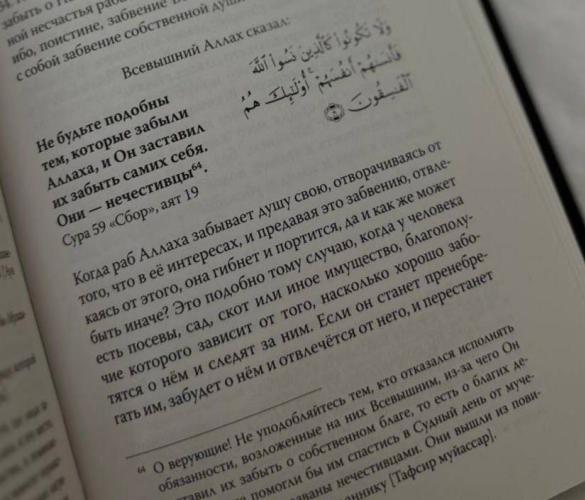 забыть о
ной несчастья раба
ибо, поистине, забвение
с собой забвение собственной души
Всевышний Аллах сказал:
وَلَا تَكُونُوا كَالَّذِينَ نَسُوا اللَّهَ
فَأَنسَىٰهُمْ أَنفُسَهُمْ ۚ أُولَٰئِكَ هُمُ
الْفَٰسِقُونَ ﴿١٩﴾
Не будьте подобны
тем, которые забыли
Аллаха, и Он заставил
их забыть самих себя.
Они — нечестивцы⁶⁴.
Сура 59 «Сбор», аят 19
Когда раб Аллаха забывает душу свою, отворачиваясь от
того, что в её интересах, и предавая это забвению, отвле-
каясь от этого, она гибнет и портится, да и как же может
быть иначе? Это подобно тому случаю, когда у человека
есть посевы, сад, скот или иное имущество, благополу-
чие которого зависит от того, насколько хорошо забо-
тятся о нём и следят за ним. Если он станет пренебре-
гать им, забудет о нём и отвлечётся от него, и перестанет
⁶⁴ О верующие! Не уподобляйтесь тем, кто отказался исполнять
обязанности, возложенные на них Всевышним, из-за чего Он
их забыть о собственном благе, то есть о благих де-
помогли бы им спастись в Судный день от муче-
нечестивцами. Они вышли из пови-
[Тафсир муйассар].